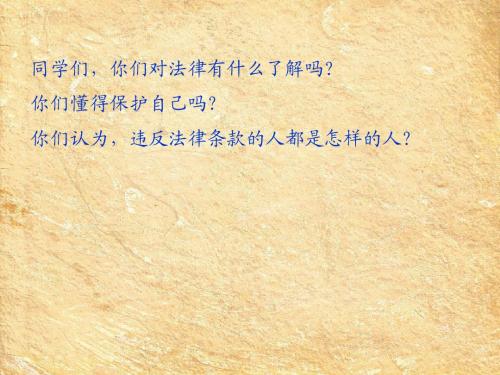 同学们，你们对法律有什么了解吗？
你们懂得保护自己吗？
你们认为，违反法律条款的人都是怎样的人？